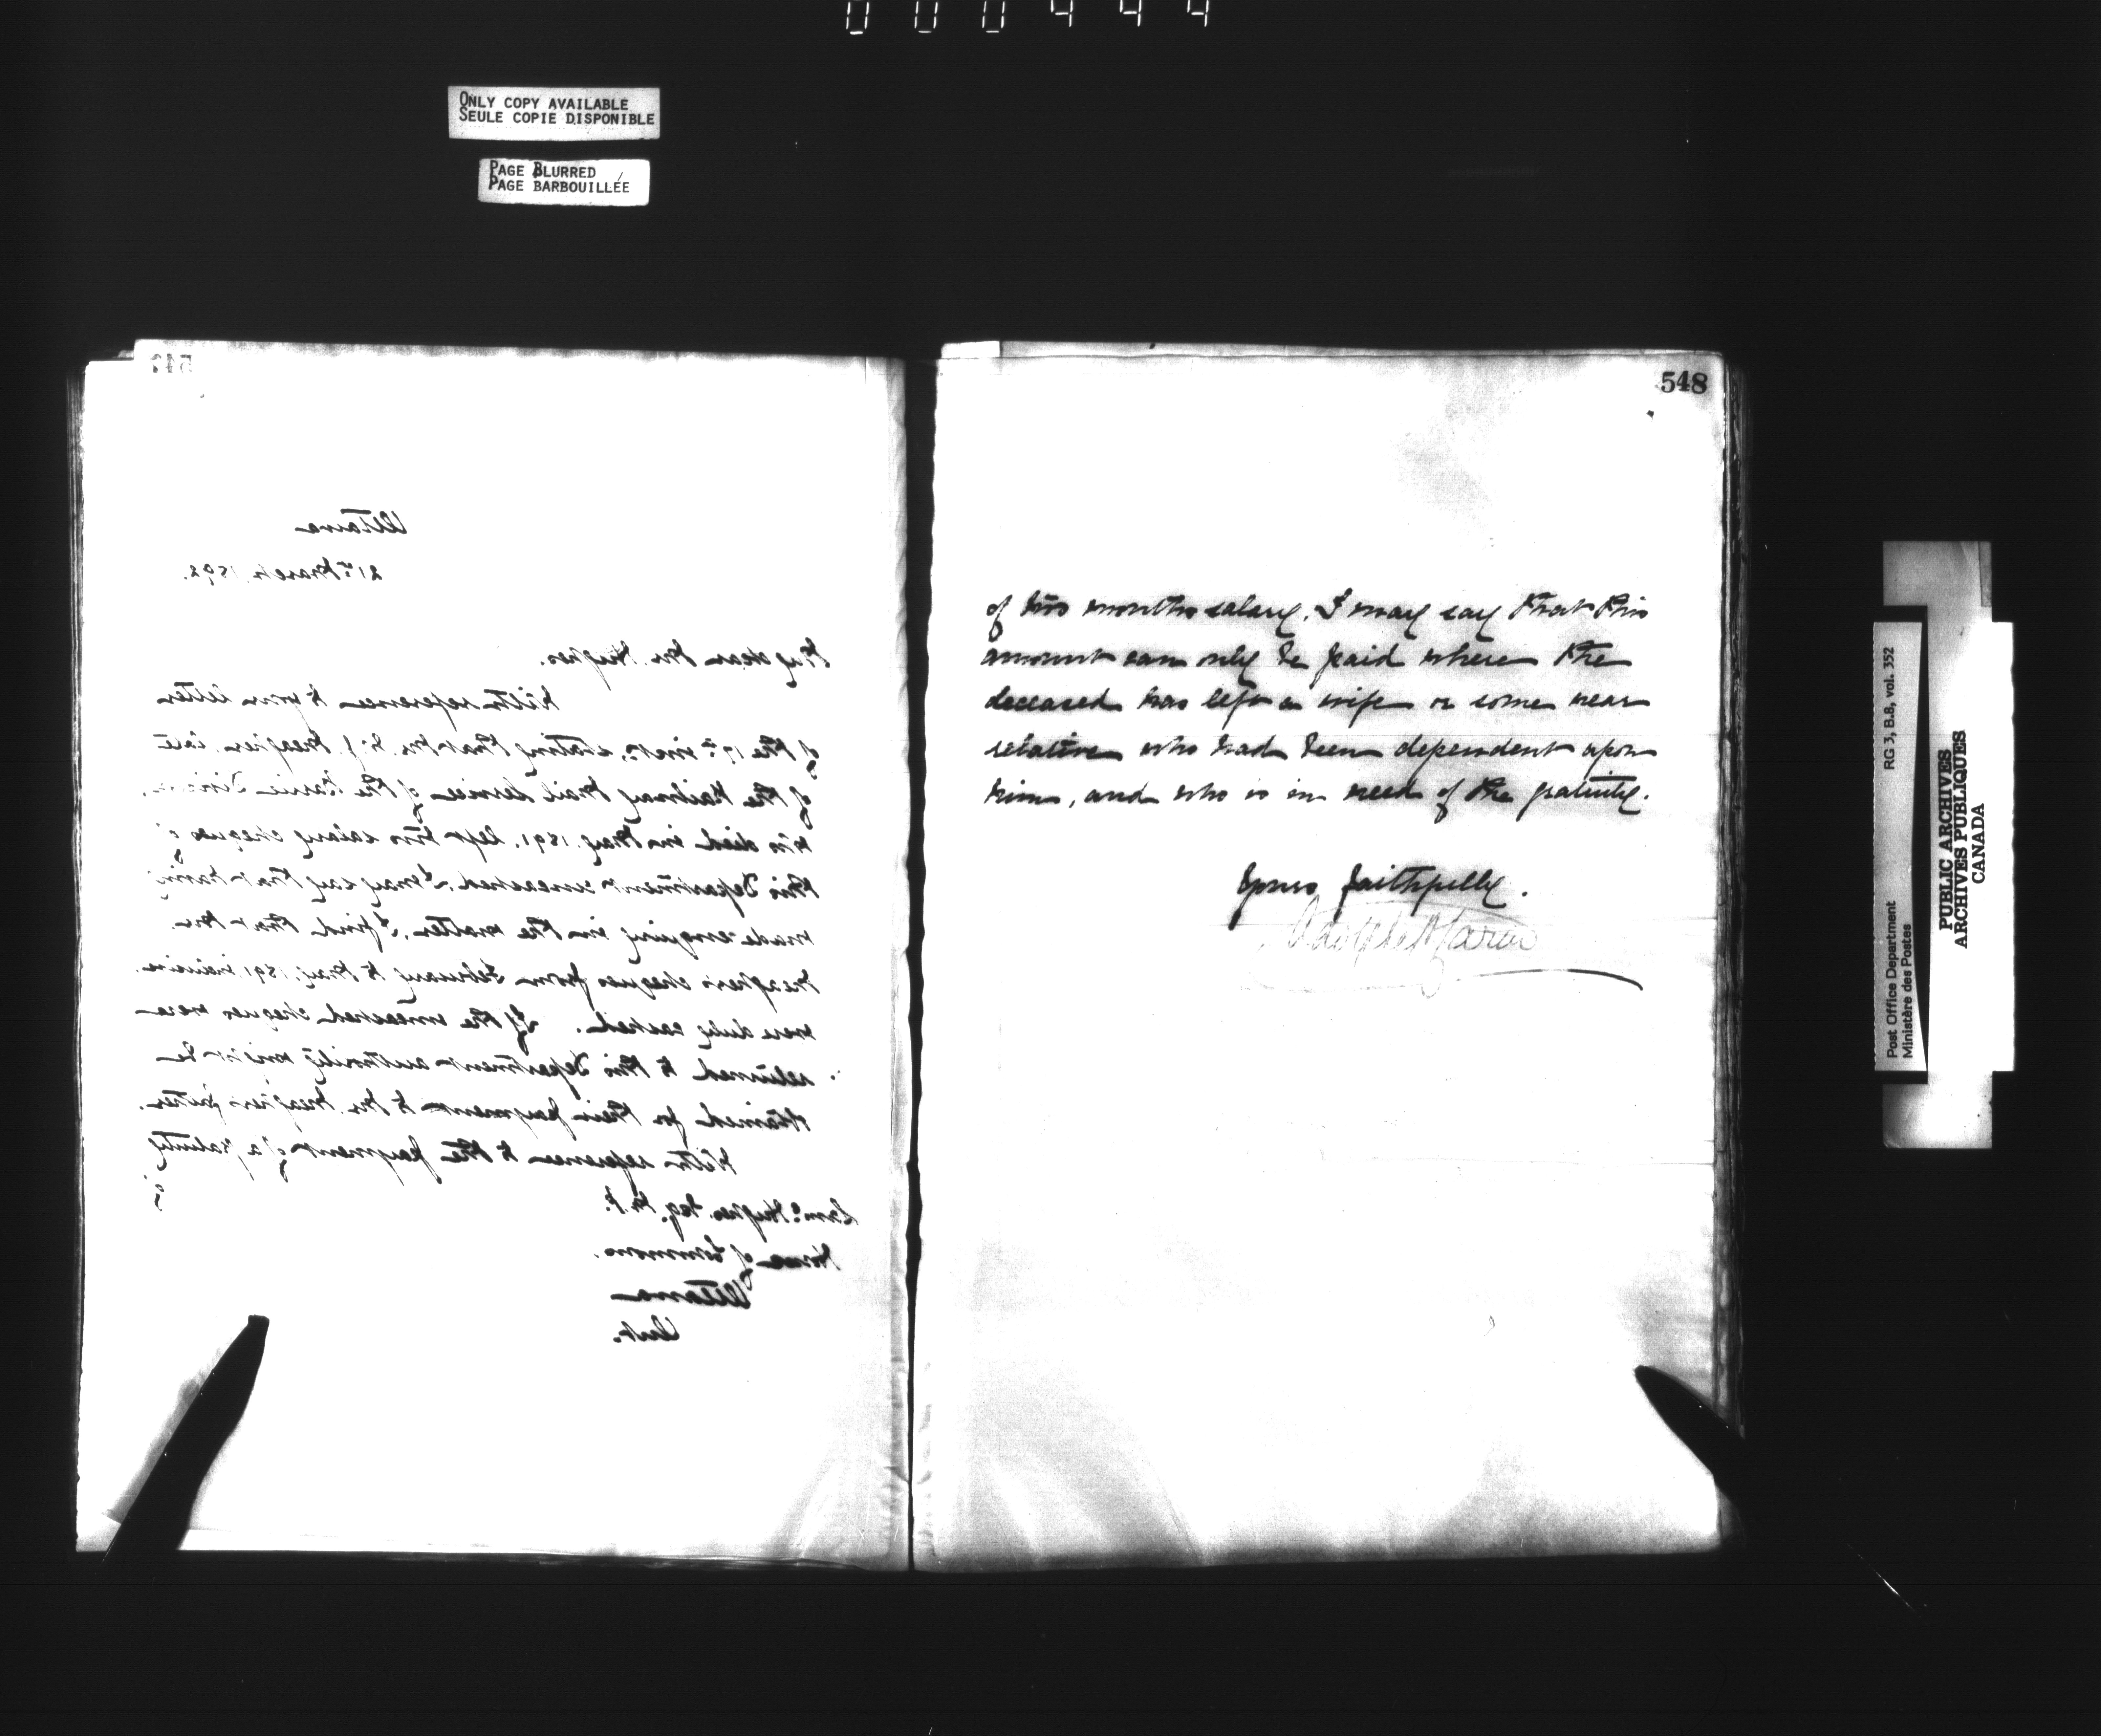 000444
ONLY COPY AVAILABLE
SEULE COPIE DISPONIBLE
PAGE BLURRED
PAGE BARBOUILLÉE
547
Ottawa
21st March, 1892.
My dear Mr. Hughes,
With reference to your letter
of the 17th inst., stating that Mr. J. Meagher, late
of the Railway Mail Service of the Barrie Division,
who died in May, 1891, left two salary cheques of
this Department uncashed, I may say that having
made enquiry in the matter, I find that Mr.
Meagher's cheques from February to May, 1891, inclusive,
were duly cashed. If the uncashed cheques were
returned to this Department authority might be
obtained for their payment to Mr. Meagher's father.
With reference to the payment of a gratuity
of
Saml. Hughes, Esq. M.P.
House of Commons,
Ottawa
Ont.
548
of two months salary, I may say that this
amount can only be paid where the
deceased has left a wife or some near
relative who had been dependent upon
him, and who is in need of the gratuity.
Yours faithfully.
Adolphe P. Caron
RG 3, B.8, vol. 352
Post Office Department
Ministère des Postes
PUBLIC ARCHIVES
ARCHIVES PUBLIQUES
CANADA